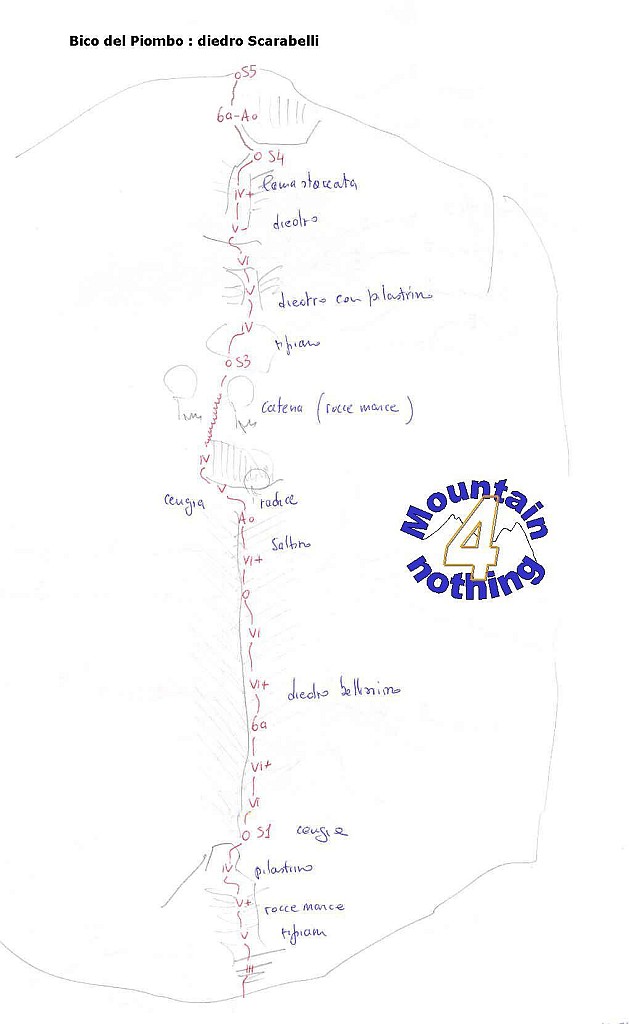 Bico del Piombo : diedro Scarabelli
S5
6a-A0
S4
IV+ lama staccata
V- diedro
VI
V diedro con pilastrino
IV
ripiano
S3
catena (rocce marce)
IV
V
cengia radice
A0
Saltino
VI+
VI
VI+ diedro bellissimo
6a
VI+
VI
S1 cengia
IV pilastrino
V+ rocce marce
V ripiani
III
Mountain
4
nothing